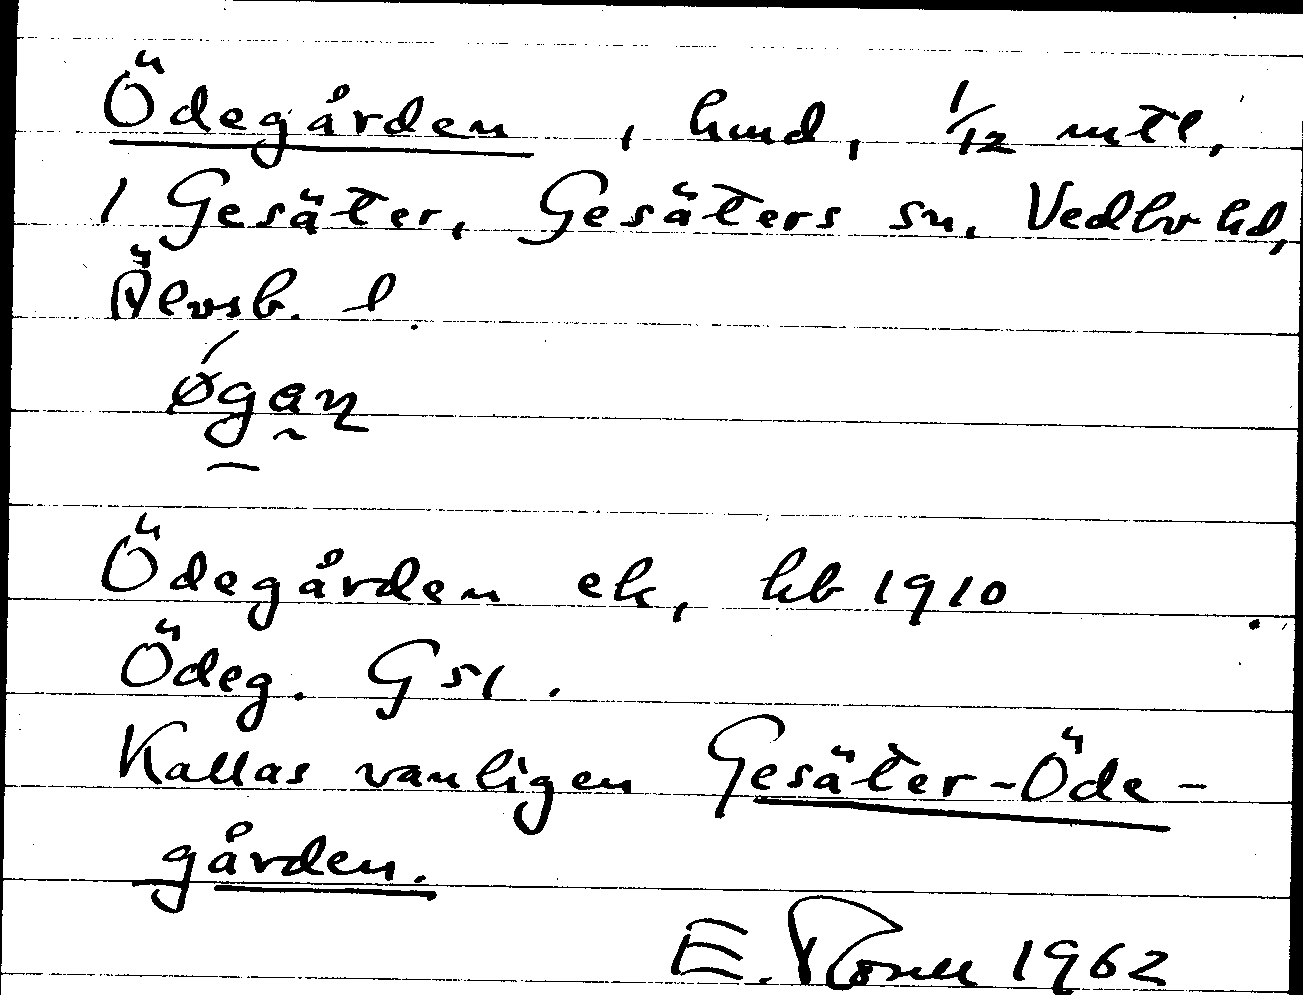 Ödegården, hmd, 1/12 mtl,
1 Gesäter, Gesäters sn, Vedbo hd,
Älvsb. l.
Ödegården ek, hb 1910.
Ödeg. GSL.
Kallas vanligen Gesäter-Öde-
gården.
E. 1962